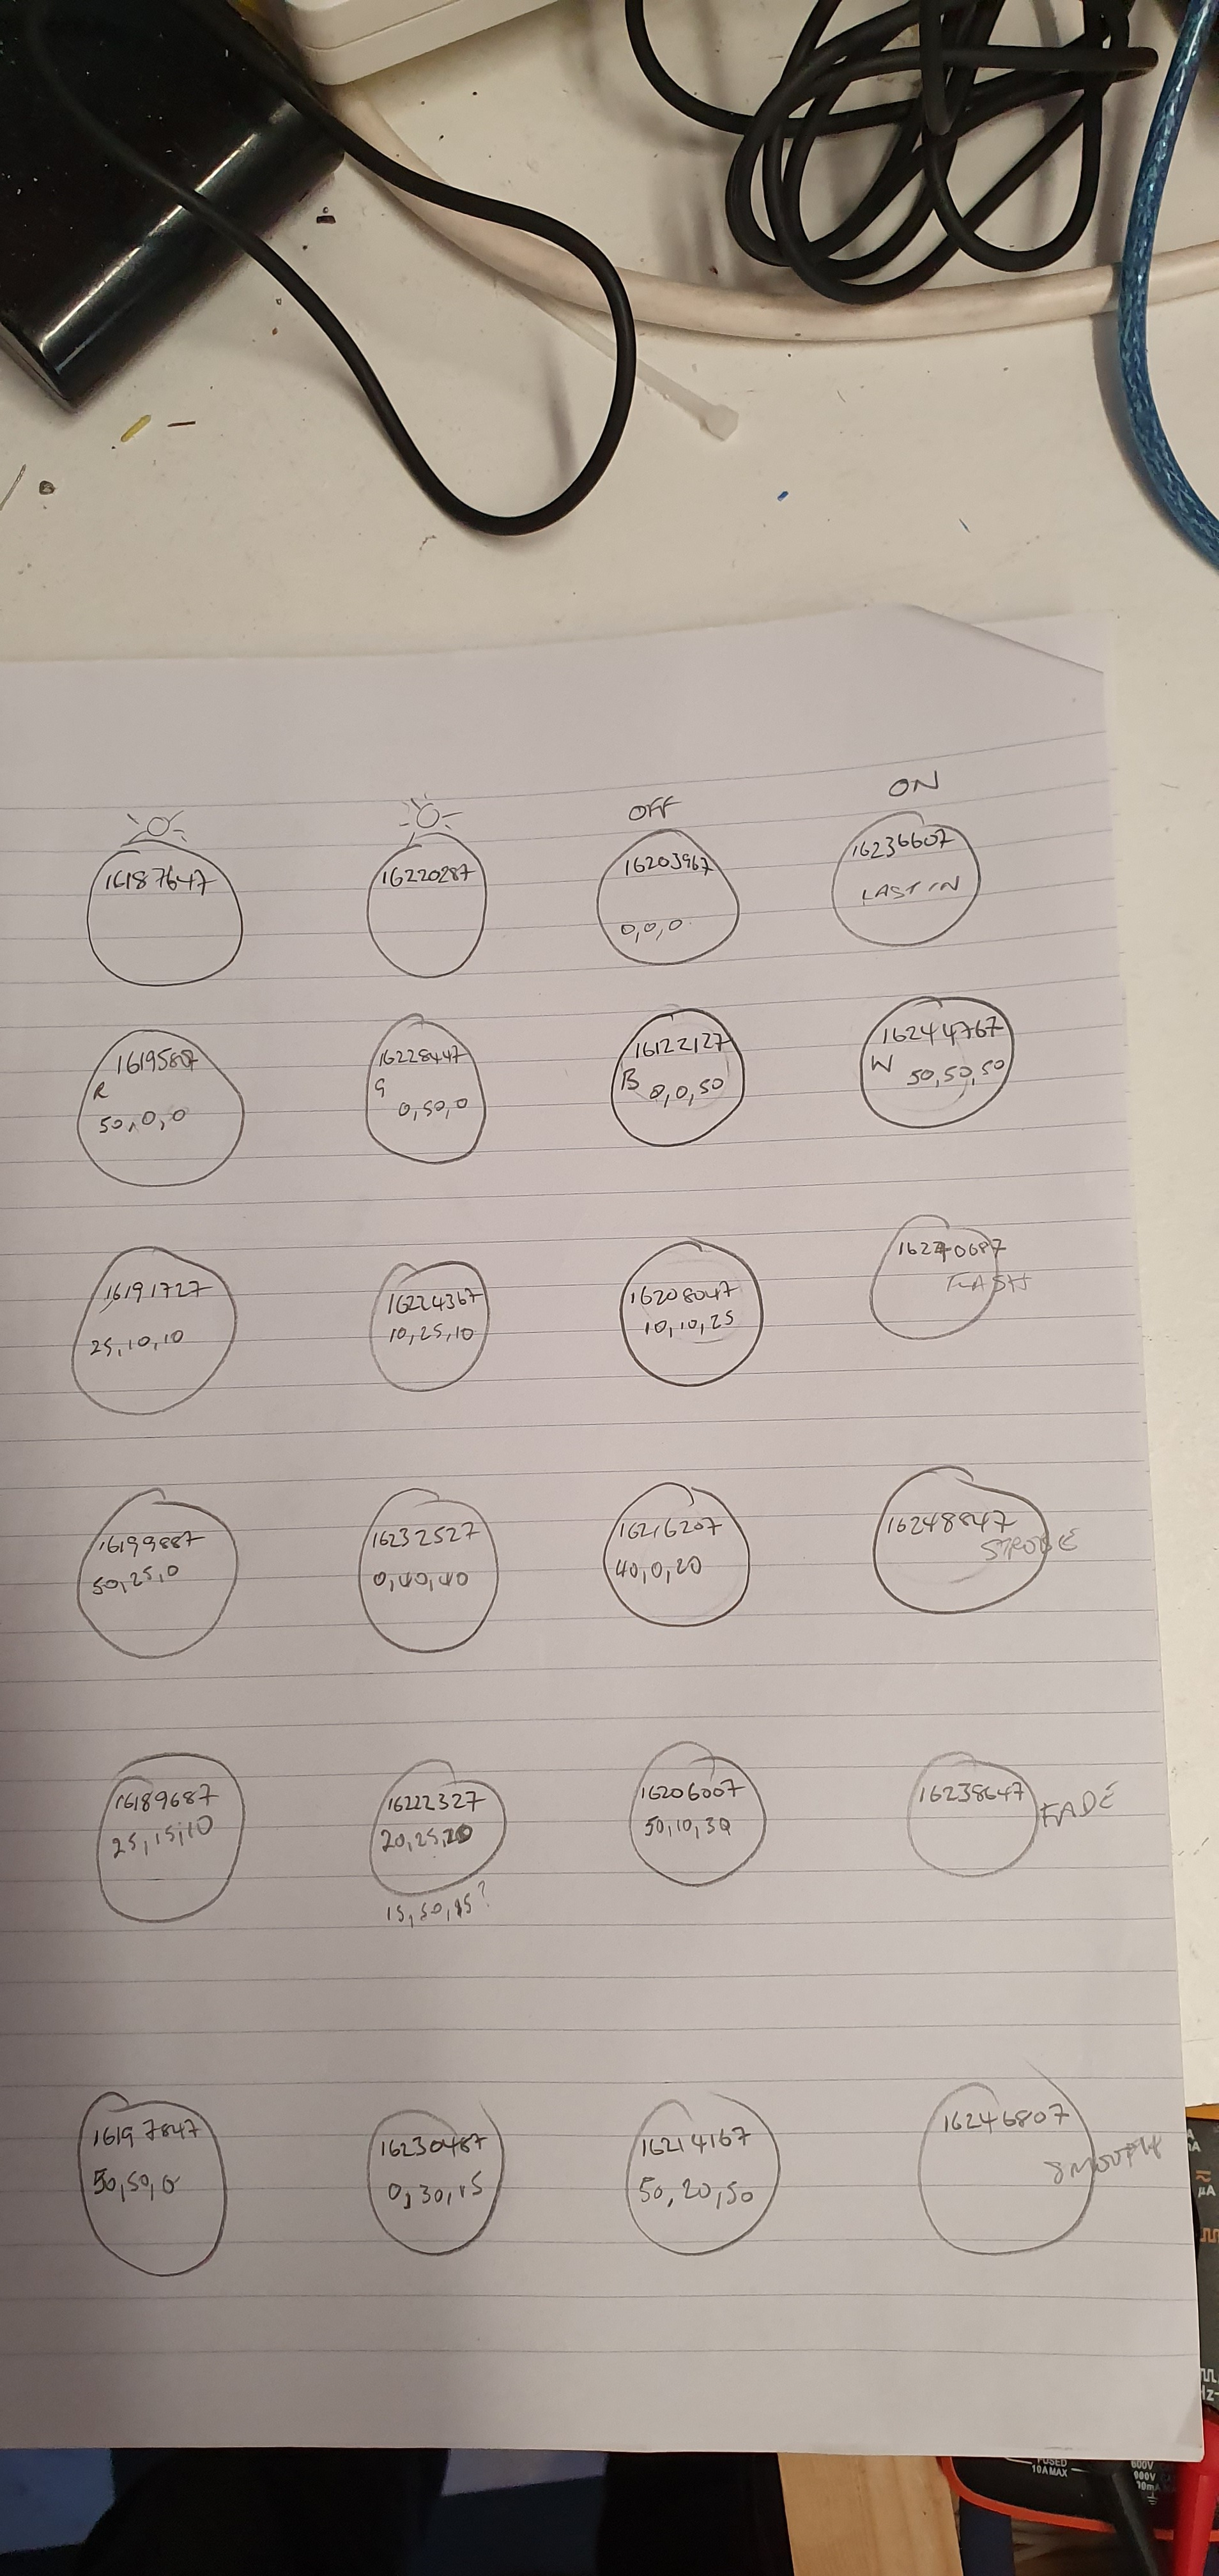 OFF
ON
16187647
16220287
16203967
0,0,0
16236607
LAST IN
16195807
R
50,0,0
16228447
G
0,50,0
16122127
B 0,0,50
16244767
W 50,50,50
16191727
25,10,10
16224367
10,25,10
16208047
10,10,25
16240687
FLASH
16199887
50,25,0
16232527
0,40,40
16216207
40,0,20
16248847
STROBE
16189687
25,15,10
16222327
20,25,20
15,50,15?
16206007
50,10,30
16238647
FADE
16197847
50,50,0
16230487
0,30,15
16214167
50,20,50
16246807
SMOOTH
µA
FUSED
10A MAX
600V